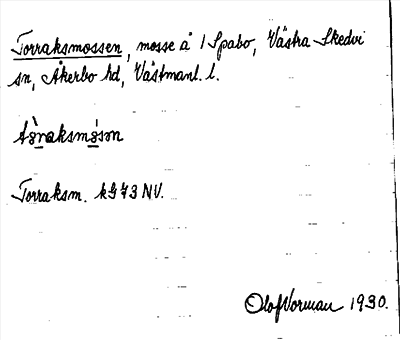 Torraksmossen, mosse å 1 Spabo, Västra Skedvi
sn, Åkerbo hd, Västmanl. l.
Torraksm. kG 73 NV.
Olof Norman 1930.